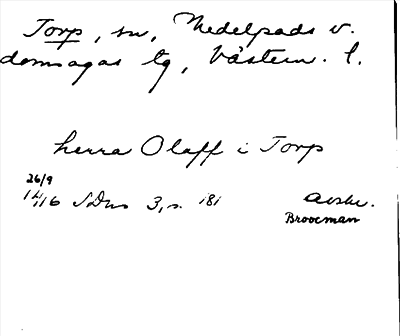 Torp, sn, Medelpads v.
domsagas tg, Västern. l.
herra Olaff i Torp
26/9
1416 SDns 3, s. 181
Avskr.
Brooman